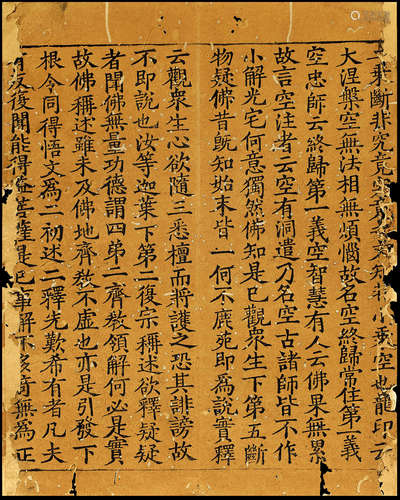 乘斷非究竟空小乘空也龍印云
大涅槃空無法相無煩惱故名空終歸常住第一義
空忠師云終歸第一義空智慧有人云佛果無累
故言空注者云空有洞遣乃名空古諸師皆不作
小解光宅何意獨然佛知是已觀衆生下第五斷
物疑佛昔旣知始末皆一何不鹿苑即爲說實釋
云觀衆生心欲隨三悉檀而將護之恐其誹謗故
不即說也汝等迦葉下第二復宗稱述欲釋疑疑
者聞佛無量功德謂四第二齊教領解何必是實
故佛稱述雖未及佛地齊教不虛也亦是引發下
根令同得悟文爲一初述二釋先歎希有者凡夫
有反復聞能得益菩薩是已事解不奇無爲正